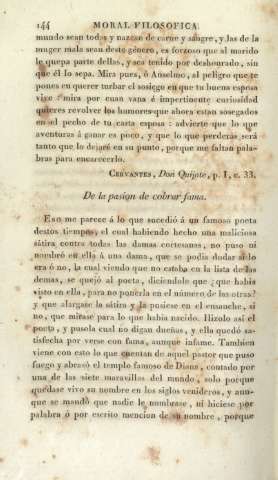 144 MORAL FILOSOFICA
mundo sean todas y nazcan de carne y sangre, y las de la
muger mala sean deste género, es forzoso que al marido
le quepa parte dellas, y sea tenido por deshonrado, sin
que él lo sepa. Mira pues, ó Anselmo, al peligro que te
pones en querer turbar el sosiego en que tu buena esposa
vive: mira por cuan vana é impertinente curiosidad
quieres revolver los humores que ahora estan sosegados
en el pecho de tu casta esposa: advierte que lo que
aventuras á ganar es poco, y que lo que perderás será
tanto que lo dejaré en su punto, porque me faltan pala-
bras para encarecerlo.
CERVANTES, Don Quijote, p. I, c. 33.
De la pasion de cobrar fama.
Eso me parece á lo que sucedió á un famoso poeta
destos tiempos, el cual habiendo hecho una maliciosa
sátira contra todas las damas cortesanas, no puso ni
nombró en ella á una dama, que se podia dudar si lo
era ó no, la cual viendo que no estaba en la lista de las
demas, se quejó al poeta, diciendole que ¿que habia
visto en ella, para no ponerla en el número de las otras?
y que alargase la sátira y la pusiese en el ensanche, si
no, que mirase para lo que habia nacido. Hizolo asi el
poeta, y pusola cual no digan dueñas, y ella quedó sa-
tisfecha por verse con fama, aunque infame. Tambien
viene con esto lo que cuentan de aquel pastor que puso
fuego y abrasó el templo famoso de Diana, contado por
una de las siete maravillas del mundo, solo porque
quedase vivo su nombre en los siglos venideros, y aun-
que se mandó que nadie le nombrase, ni hiciese por
palabra ó por escrito mencion de su nombre, porque